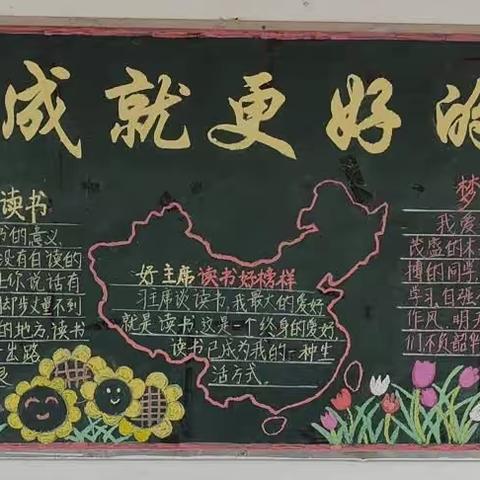 成就更好的
读书
书的意义
没有白读的
让你说话有
脚步丈量不到
的地方读书
出路
好主席读书好榜样
习主席谈读书,我最大的爱好
就是读书,这是一个终身的爱好
读书已成为我的一种生
活方式。
梦
我爱
茂盛的木
搏的同学
学习,自强
作风,明天
们不负韶华